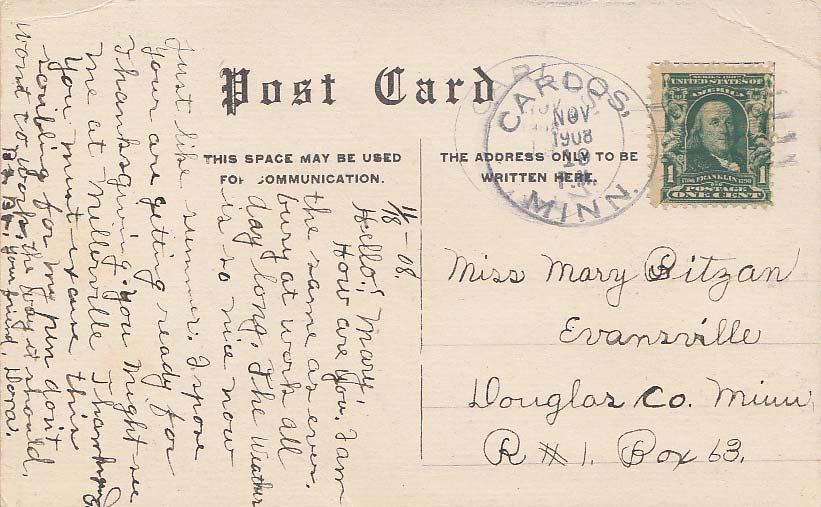 Post Card
THIS SPACE MAY BE USED
FOR COMMUNICATION.
THE ADDRESS ONLY TO BE
WRITTEN HERE.
CARDOS,
NOV
1908
MINN.
SERIES 1902
UNITED STATES OF
AMERICA
1 FRANKLIN 1
POSTAGE
ONE CENT
Miss Mary Bitzan
Evansville
Douglas Co. Minn
R # 1. Box 63.
11/8-08.
Hello! Mary,
How are you. I am
the same as ever.
busy at work all
day long. The Weather
is so nice now
Just like summer. I spose
your are getting ready for
Thanksgiving. you might see
me at Millerville Thanksg
You must excuse this
scribling for my pen don't
want to work the way it should,
your friend, Dora.